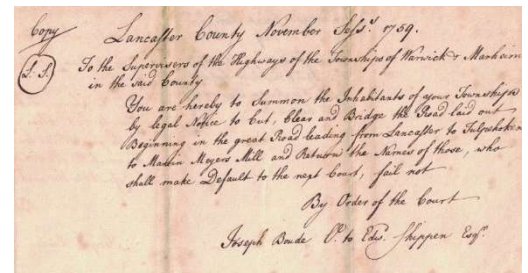 Copy
Lancaster County November Sessⁿ. 1759.
To the Supervisors of the Highways of the Townships of Warwick & Manheim
in the said County
You are hereby to Summon the Inhabitants of your Townships
by legal Notice to Cut, Clear and Bridge the Road laid out
Beginning in the great Road leading from Lancaster to Tulpehoken
to Martin Meyers Mill and Return the Names of those, who
shall make Default to the next Court, fail not
By Order of the Court
Joseph Boude to Edwd. Shippen Esqr.